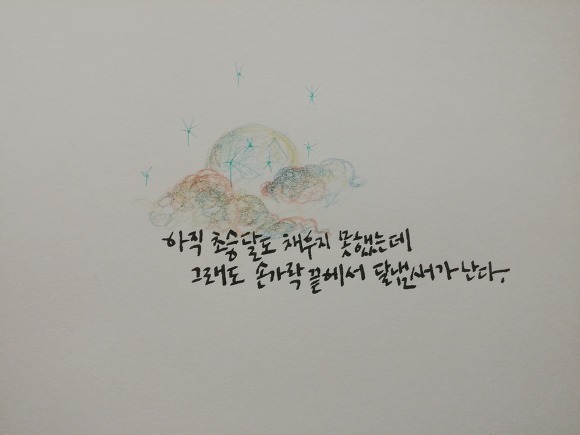 아직 초승달도 채우지 못했는데
그래도 손가락 끝에서 달냄새가 난다.